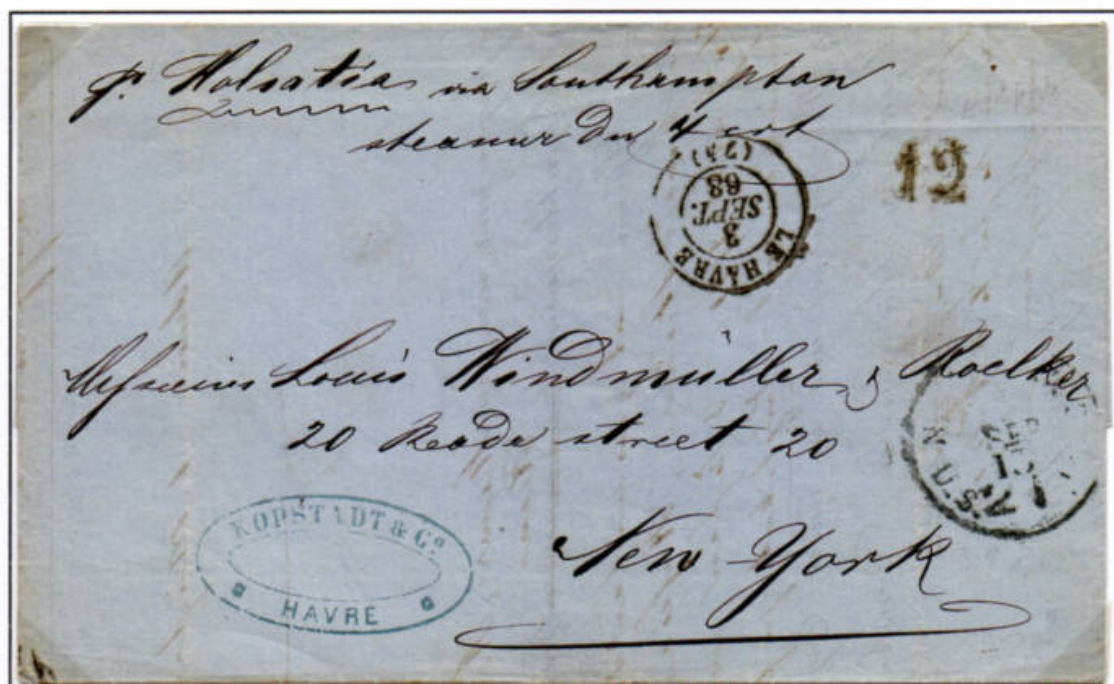 pr Holsatia via Southampton
steamur du 4 crt
12
LE HAVRE
3
SEPT.
68
(74)
Messieurs Louis Windmüller & Roelker
20 Reade street 20
New York
N
U.S.
KOPSTADT & Co
HAVRE